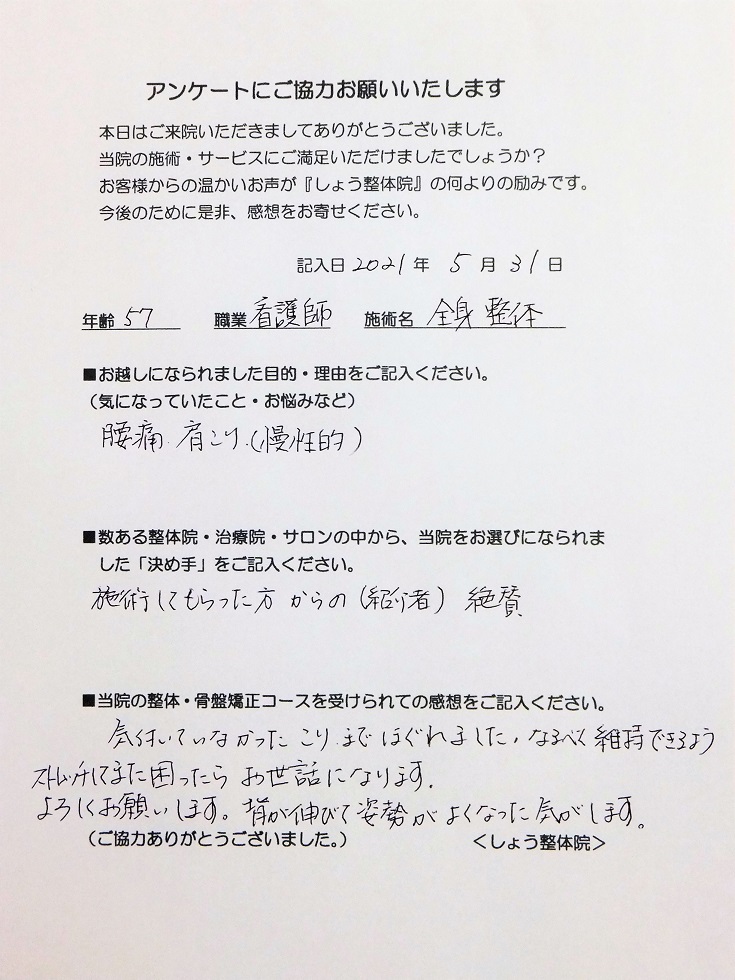 アンケートにご協力お願いいたします
本日はご来院いただきましてありがとうございました。
当院の施術・サービスにご満足いただけましたでしょうか？
お客様からの温かいお声が『しょう整体院』の何よりの励みです。
今後のために是非、感想をお寄せください。
記入日 2021 年 5 月 31 日
年齢 57 職業 看護師 施術名 全身整体
■お越しになられました目的・理由をご記入ください。
（気になっていたこと・お悩みなど）
腰痛.肩こり.(慢性的)
■数ある整体院・治療院・サロンの中から、当院をお選びになられま
した「決め手」をご記入ください。
施術してもらった方からの(紹介者) 絶賛
■当院の整体・骨盤矯正コースを受けられての感想をご記入ください。
気付いていなかったこりまでほぐれました,なるべく維持できるよう
ストレッチしてまた困ったらお世話になります.
よろしくお願いします。背が伸びて姿勢がよくなった気がします。
（ご協力ありがとうございました。） ＜しょう整体院＞